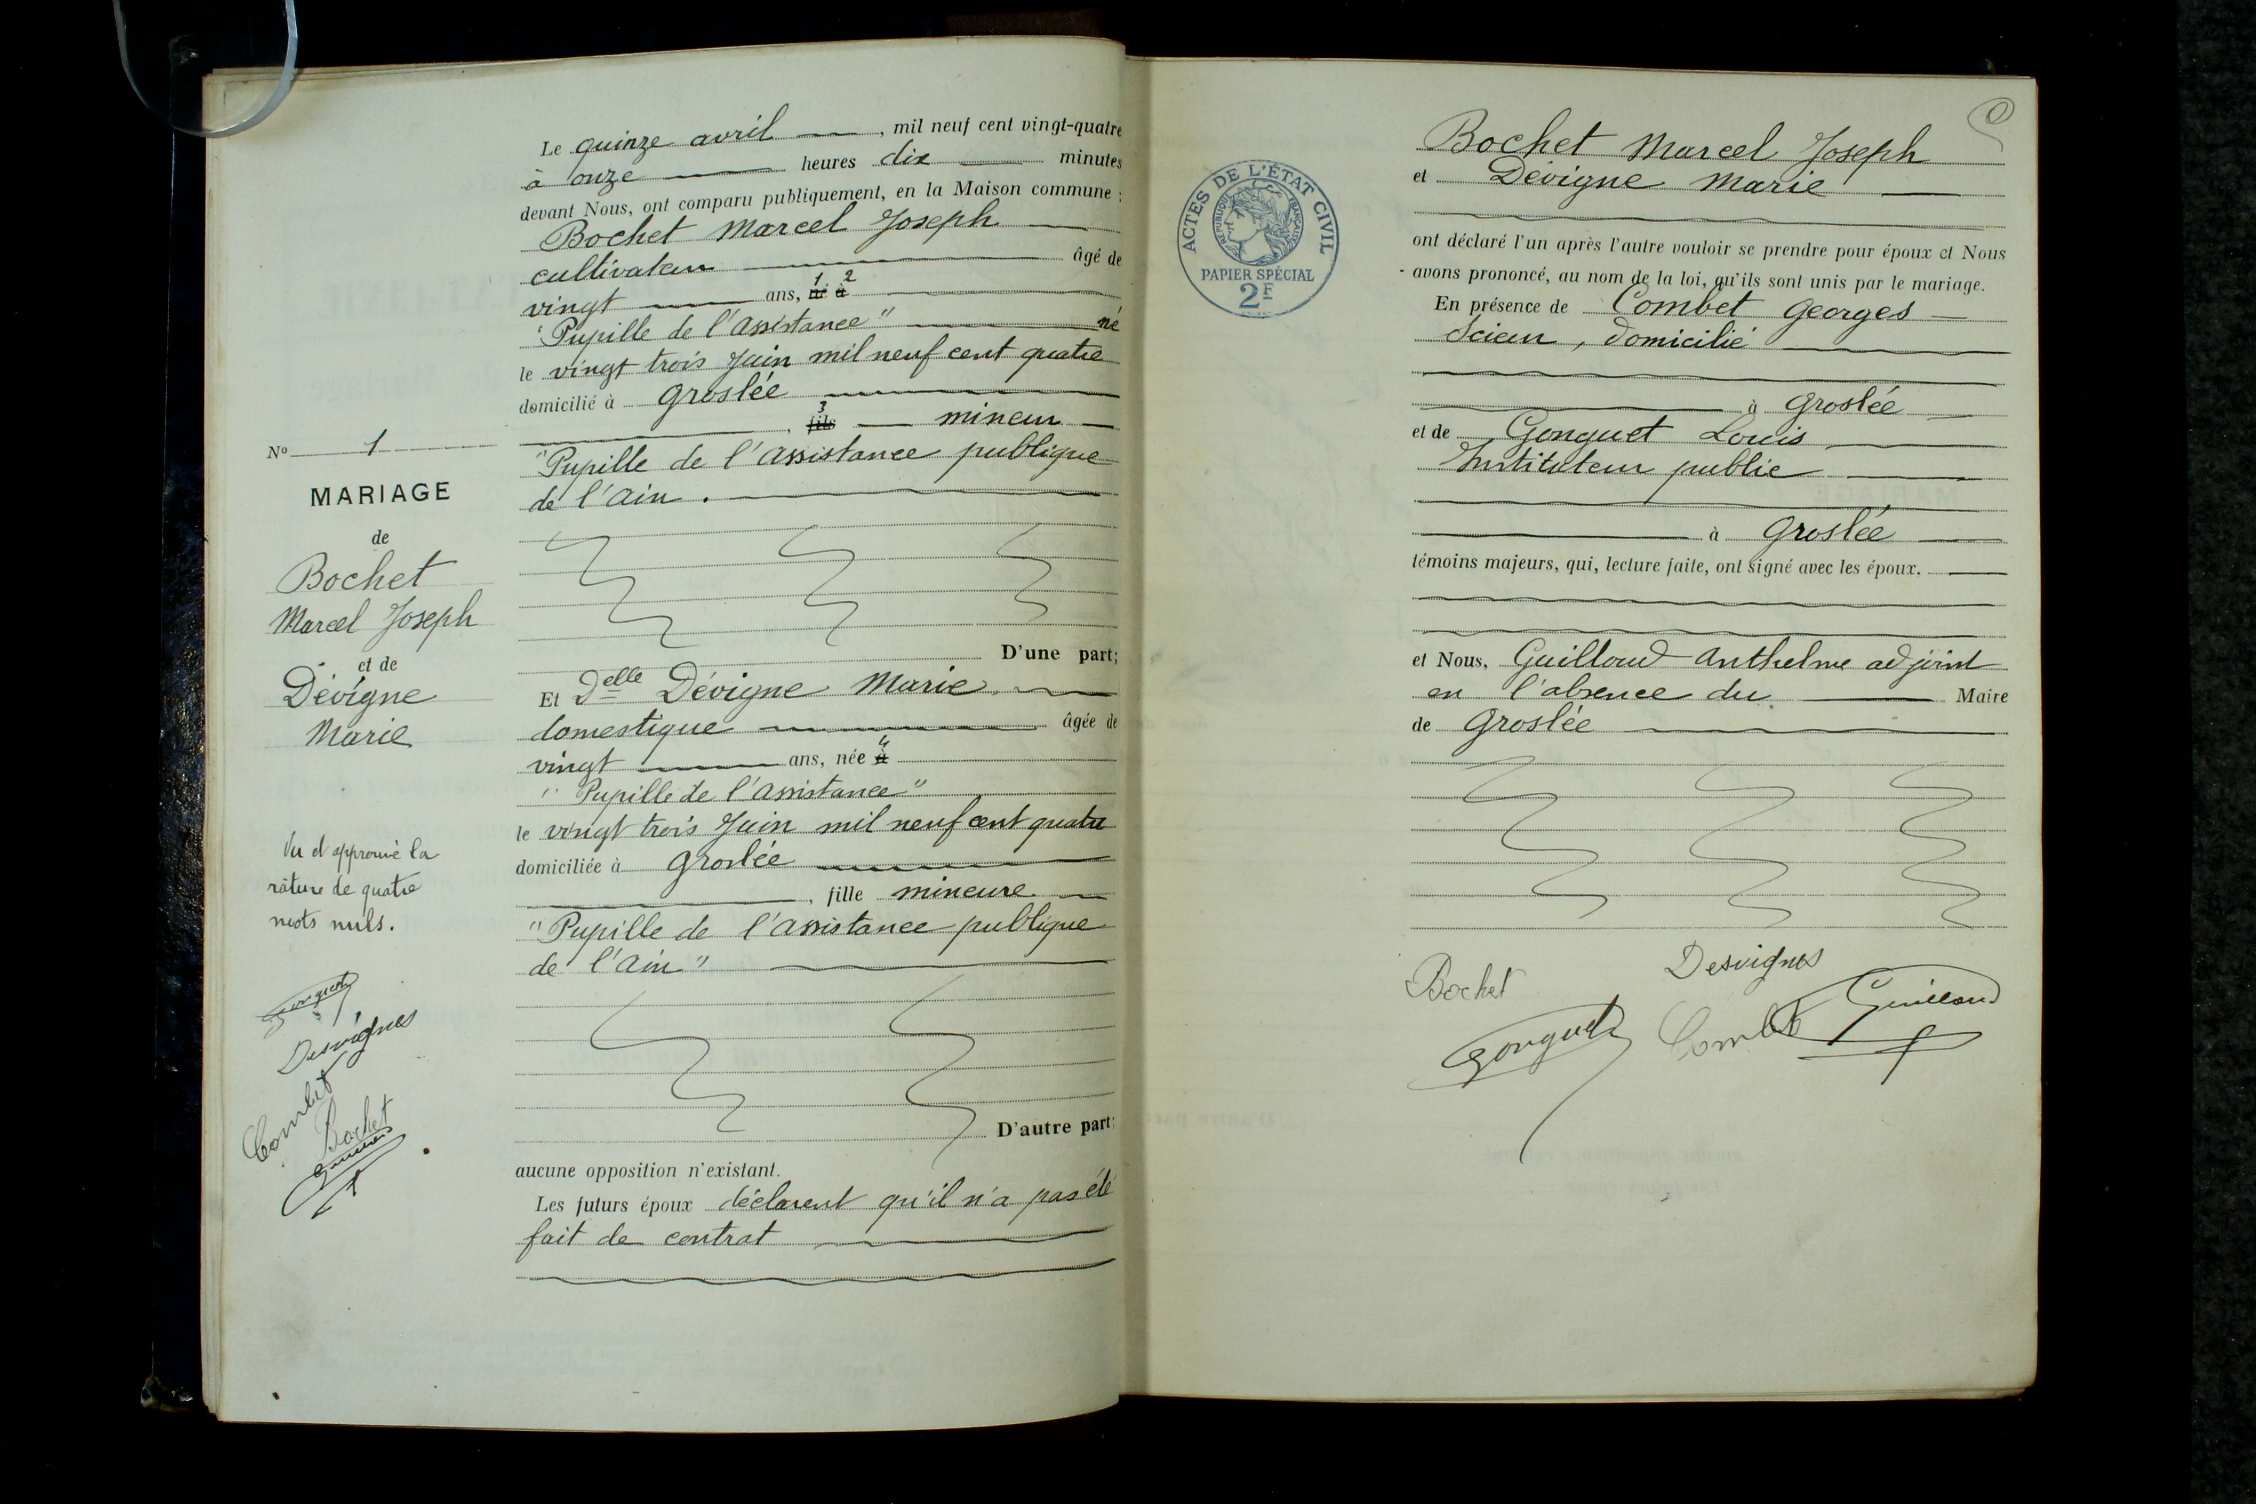 Le quinze avril , mil neuf cent vingt-quatre
à onze heures dix minutes
devant Nous, ont comparu publiquement, en la Maison commune :
Bochet Marcel Joseph
cultivateur âgé de
vingt ans, né 1 à 2
"Pupille de l'Assistance" né
le vingt trois Juin mil neuf cent quatre
domicilié à Groslée
, fils 3 mineur
"Pupille de l'Assistance publique
de l'Ain.
D'une part;
Et Delle Dévigne Marie
domestique âgée de
vingt ans, née à 4
"Pupille de l'Assistance"
le vingt trois Juin mil neuf cent quatre
domiciliée à Groslée
, fille mineure
"Pupille de l'Assistance publique
de l'Ain"
D'autre part;
aucune opposition n'existant.
Les futurs époux déclarent qu'il n'a pas été
fait de contrat
No 1
MARIAGE
de
Bochet
Marcel Joseph
et de
Dévigne
Marie
Vu et approuvé la
râture de quatre
mots nuls.
Gonguet
Desvignes
Combet
Bochet
Guilloud
ACTES DE L'ÉTAT CIVIL
RÉPUBLIQUE FRANÇAISE
PAPIER SPÉCIAL
2F
Bochet Marcel Joseph
et Dévigne Marie
ont déclaré l'un après l'autre vouloir se prendre pour époux et Nous
avons prononcé, au nom de la loi, qu'ils sont unis par le mariage.
En présence de Combet Georges
Scieur, domicilié
à Groslée
et de Gonguet Louis
Instituteur public
à Groslée
témoins majeurs, qui, lecture faite, ont signé avec les époux.
et Nous, Guilloud Anthelme adjoint
en l'absence du Maire
de Groslée
Bochet
Desvignes
Gonguet
Combet
Guilloud